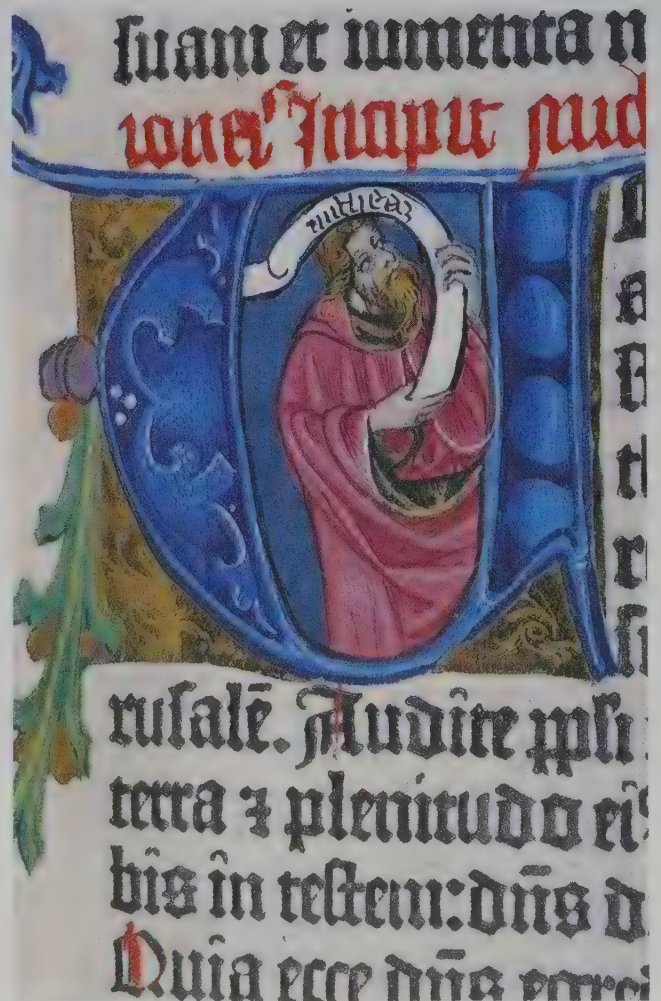 ſuam et iumenta
Incipit
micheas
ruſalē. Audite ppli
terra ⁊ plenitudo ei
bis in teſtem: dn̄s d
Quia ecce dn̄s